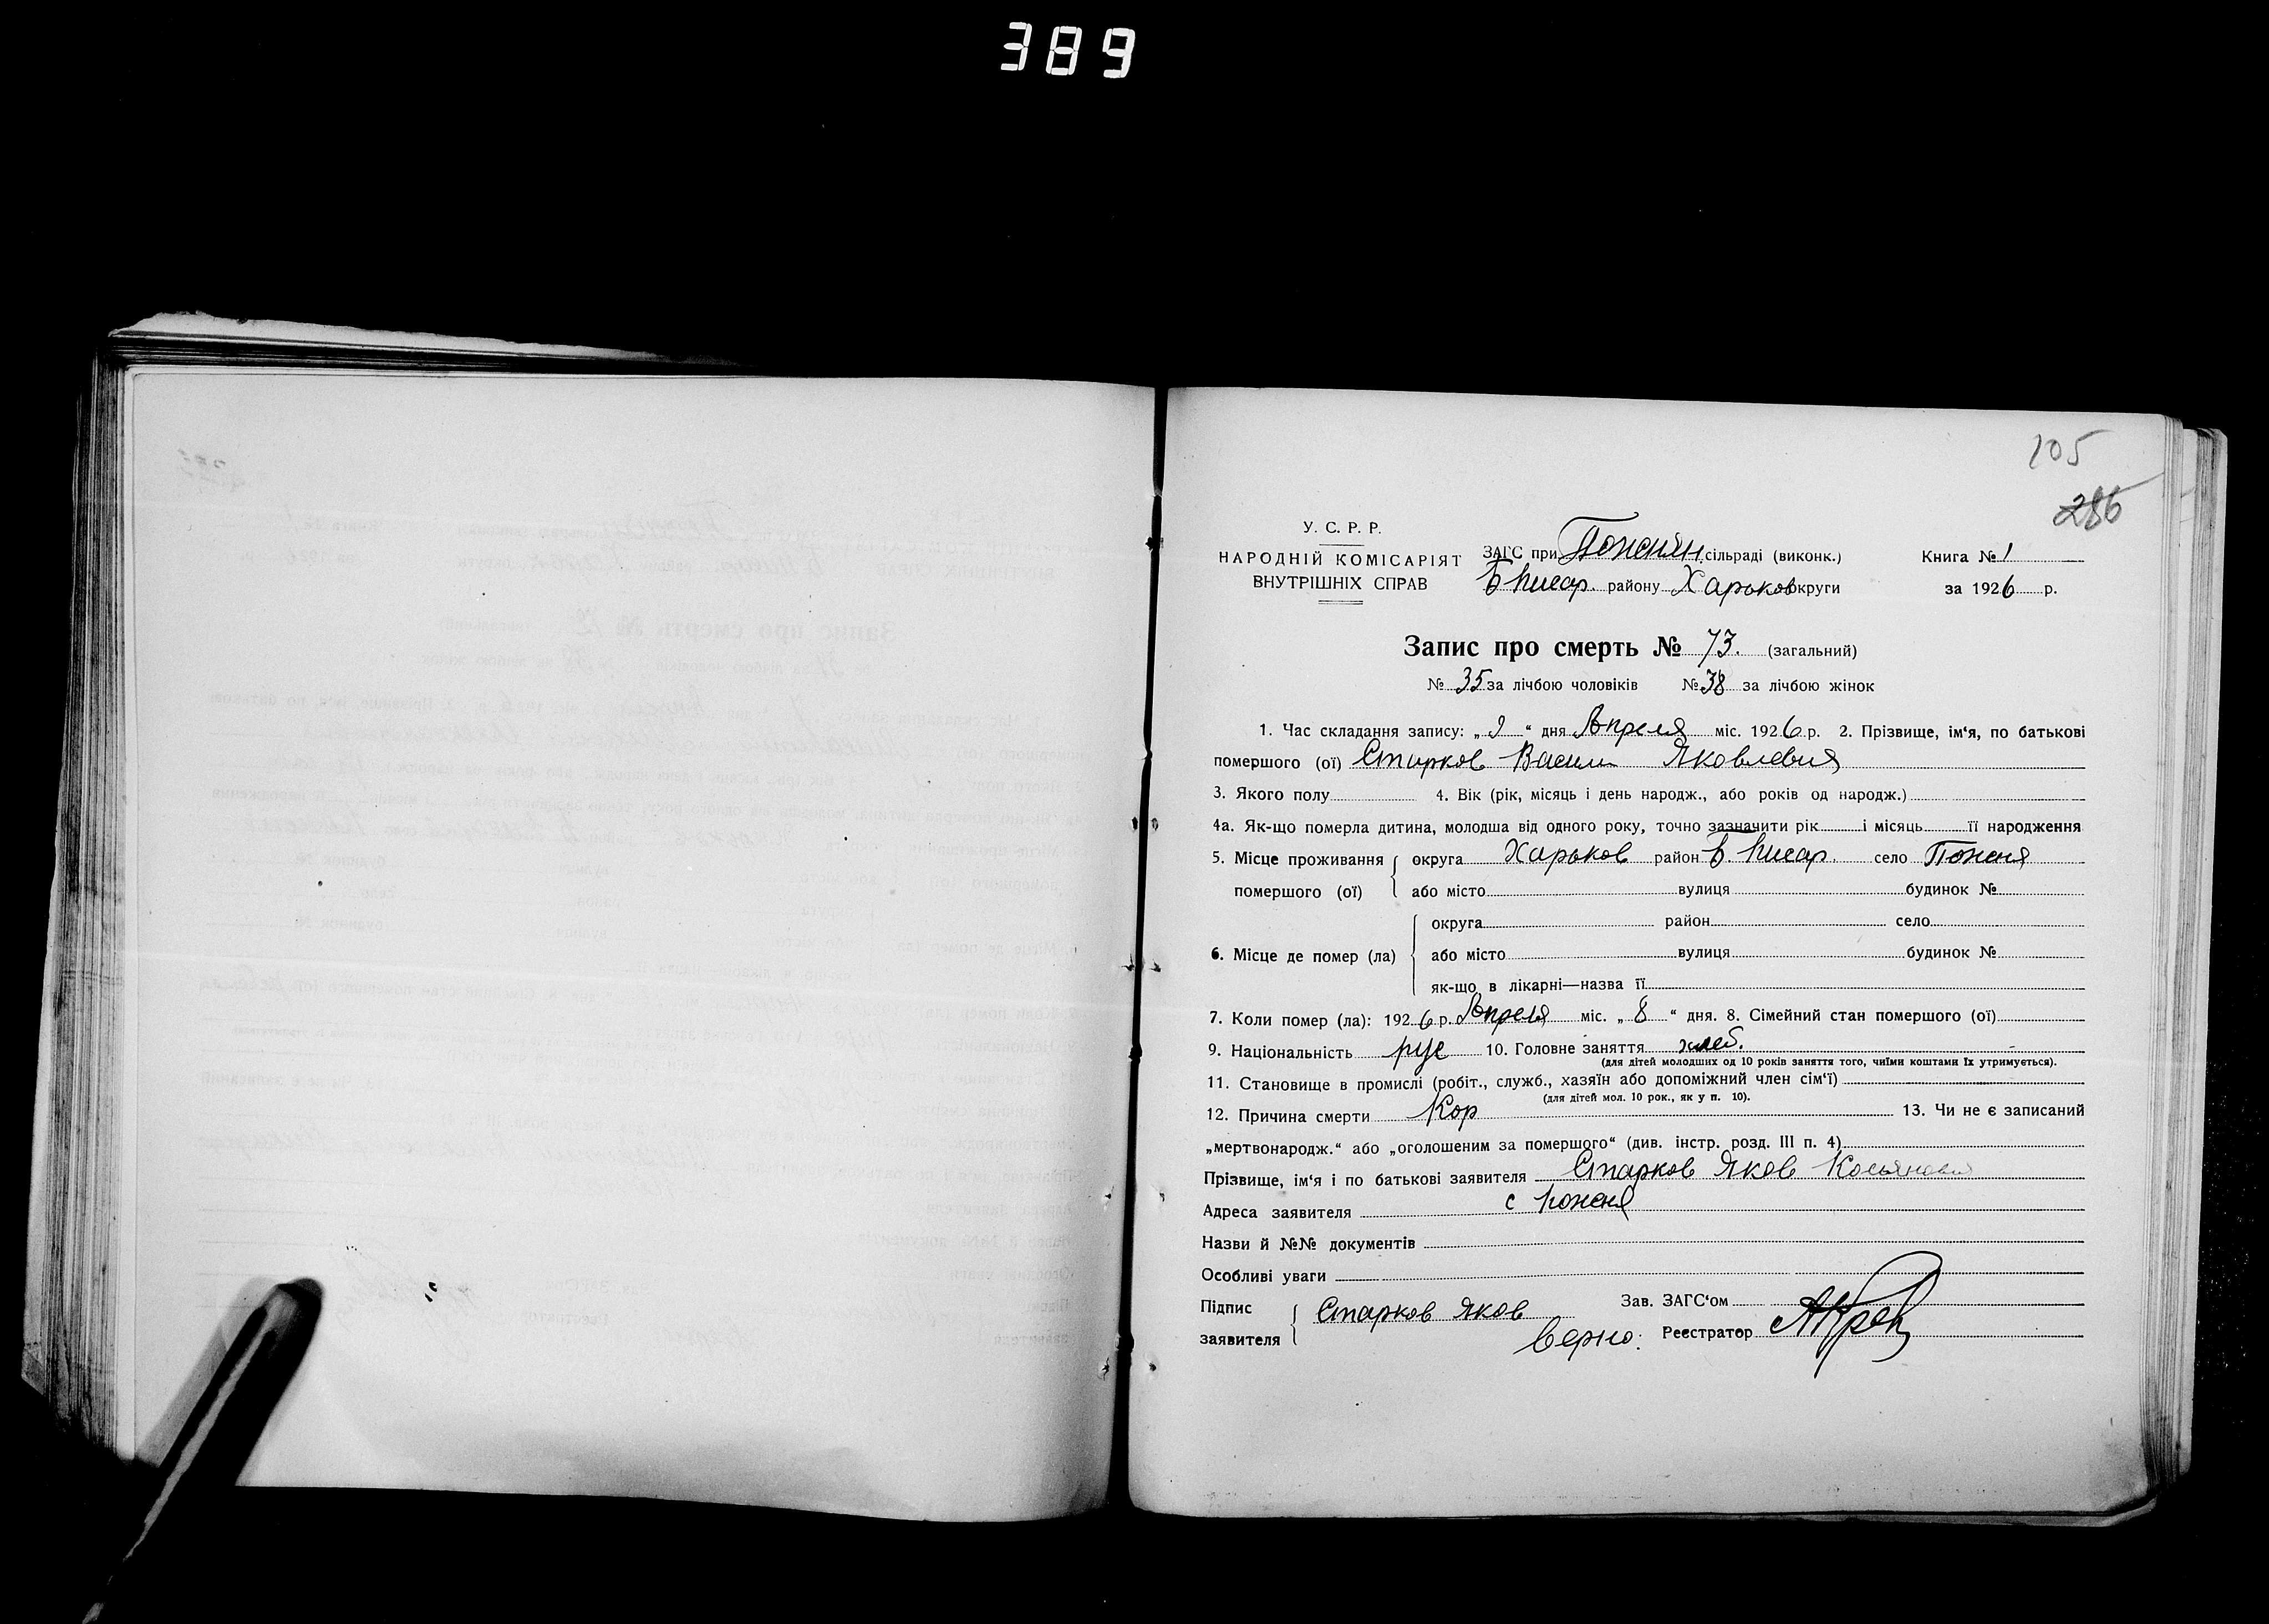 389
105
286
У. С. Р. Р.
НАРОДНІЙ КОМІСАРІЯТ
ВНУТРІШНІХ СПРАВ
ЗАГС при Пожнян. сільраді (виконк.)
Б Писар. району Харьков округи
Книга № 1
за 1926 р.
Запис про смерть № 73. (загальний)
№ 35 за лічбою чоловіків № 38 за лічбою жінок
1. Час складання запису: „ 9 “ дня Апреля міс. 1926 р. 2. Прізвище, ім‘я, по батькові
помершого (ої) Старков Васили Яковлевич
3. Якого полу 4. Вік (рік, місяць і день народж., або років од народж.)
4а. Як-що померла дитина, молодша від одного року, точно зазначити рік і місяць її народження
5. Місце проживання помершого (ої) округа Харьков район Б. Писар. село Пожня
або місто вулиця будинок №
6. Місце де помер (ла) округа район село
або місто вулиця будинок №
як-що в лікарні—назва її
7. Коли помер (ла): 1926 р. Апреля міс. „ 8 “ дня. 8. Сімейний стан помершого (ої)
9. Національність рус 10. Головне заняття хлеб.
(для дітей молодших од 10 років заняття того, чиїми коштами їх утримується).
11. Становище в промислі (робіт., служб., хазяїн або допоміжний член сім‘ї)
(для дітей мол. 10 рок., як у п. 10).
12. Причина смерти Кор 13. Чи не є записаний
„мертвонародж.“ або „оголошеним за помершого“ (див. інстр. розд. III п. 4)
Прізвище, ім‘я і по батькові заявителя Старков Яков
Адреса заявителя с Пожня
Назви й №№ документів
Особливі уваги
Підпис заявителя Старков Яков
Зав. ЗАГС‘ом
Верно: Реєстратор